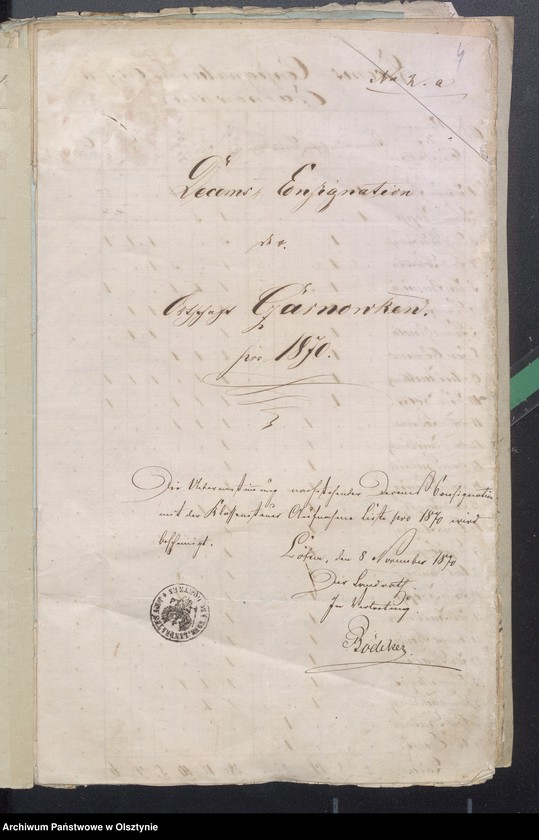 4
No 2. a
Decems Consignation
der
Ortschaft Czarnowken.
pro 1870.
Die Uebereinstimmung nachstehender Decems Consignation
mit der Klassensteuer Aufnahme Liste pro 1870 wird
bescheinigt.
Lötzen, den 8 November 1870
Der Landrath
In Vertretung
Bödeker
Archiwum Państwowe w Olsztynie